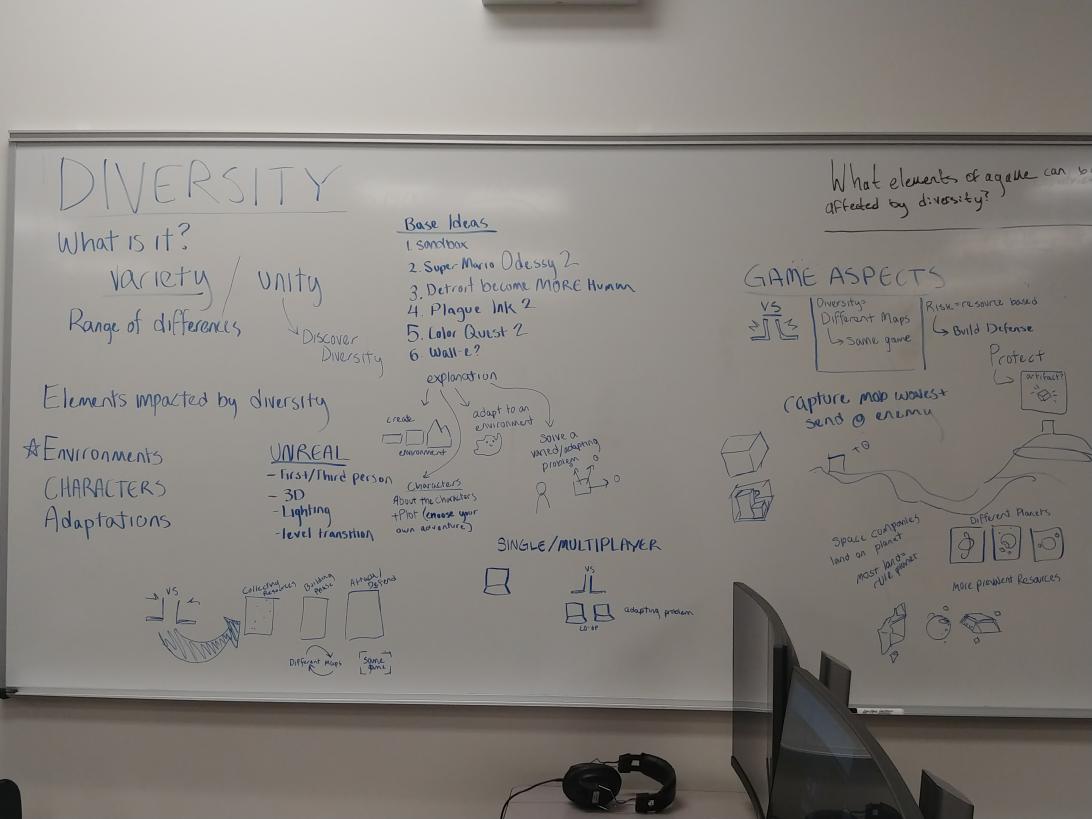 DIVERSITY
What is it?
Variety / Unity
Range of differences
Discover
Diversity
Elements impacted by diversity
☆ Environments
CHARACTERS
Adaptations
UNREAL
- First/Third person
- 3D
- Lighting
- level transition
Base Ideas
1. Sandbox
2. Super Mario Odessy 2
3. Detroit become MORE Human
4. Plague Ink 2
5. Color Quest 2
6. Wall-e?
explanation
create
environment
adapt to an
environment
solve a
varied/adapting
problem
Characters
About the characters
+Plot (choose your
own adventure)
SINGLE/MULTIPLAYER
VS
CO-OP
adapting problem
VS
Collecting
Resources
Building
Phase
Attack/
Defend
Different Maps
Same
game
What elements of a game can
affected by diversity?
GAME ASPECTS
VS
Diversity=
Different Maps
Same game
Risk=resource based
Build Defense
Protect
artifact?
capture mob waves+
send @ enemy
Space companies
land on planet
most land=
rule planet
Different Planets
More prevalent Resources